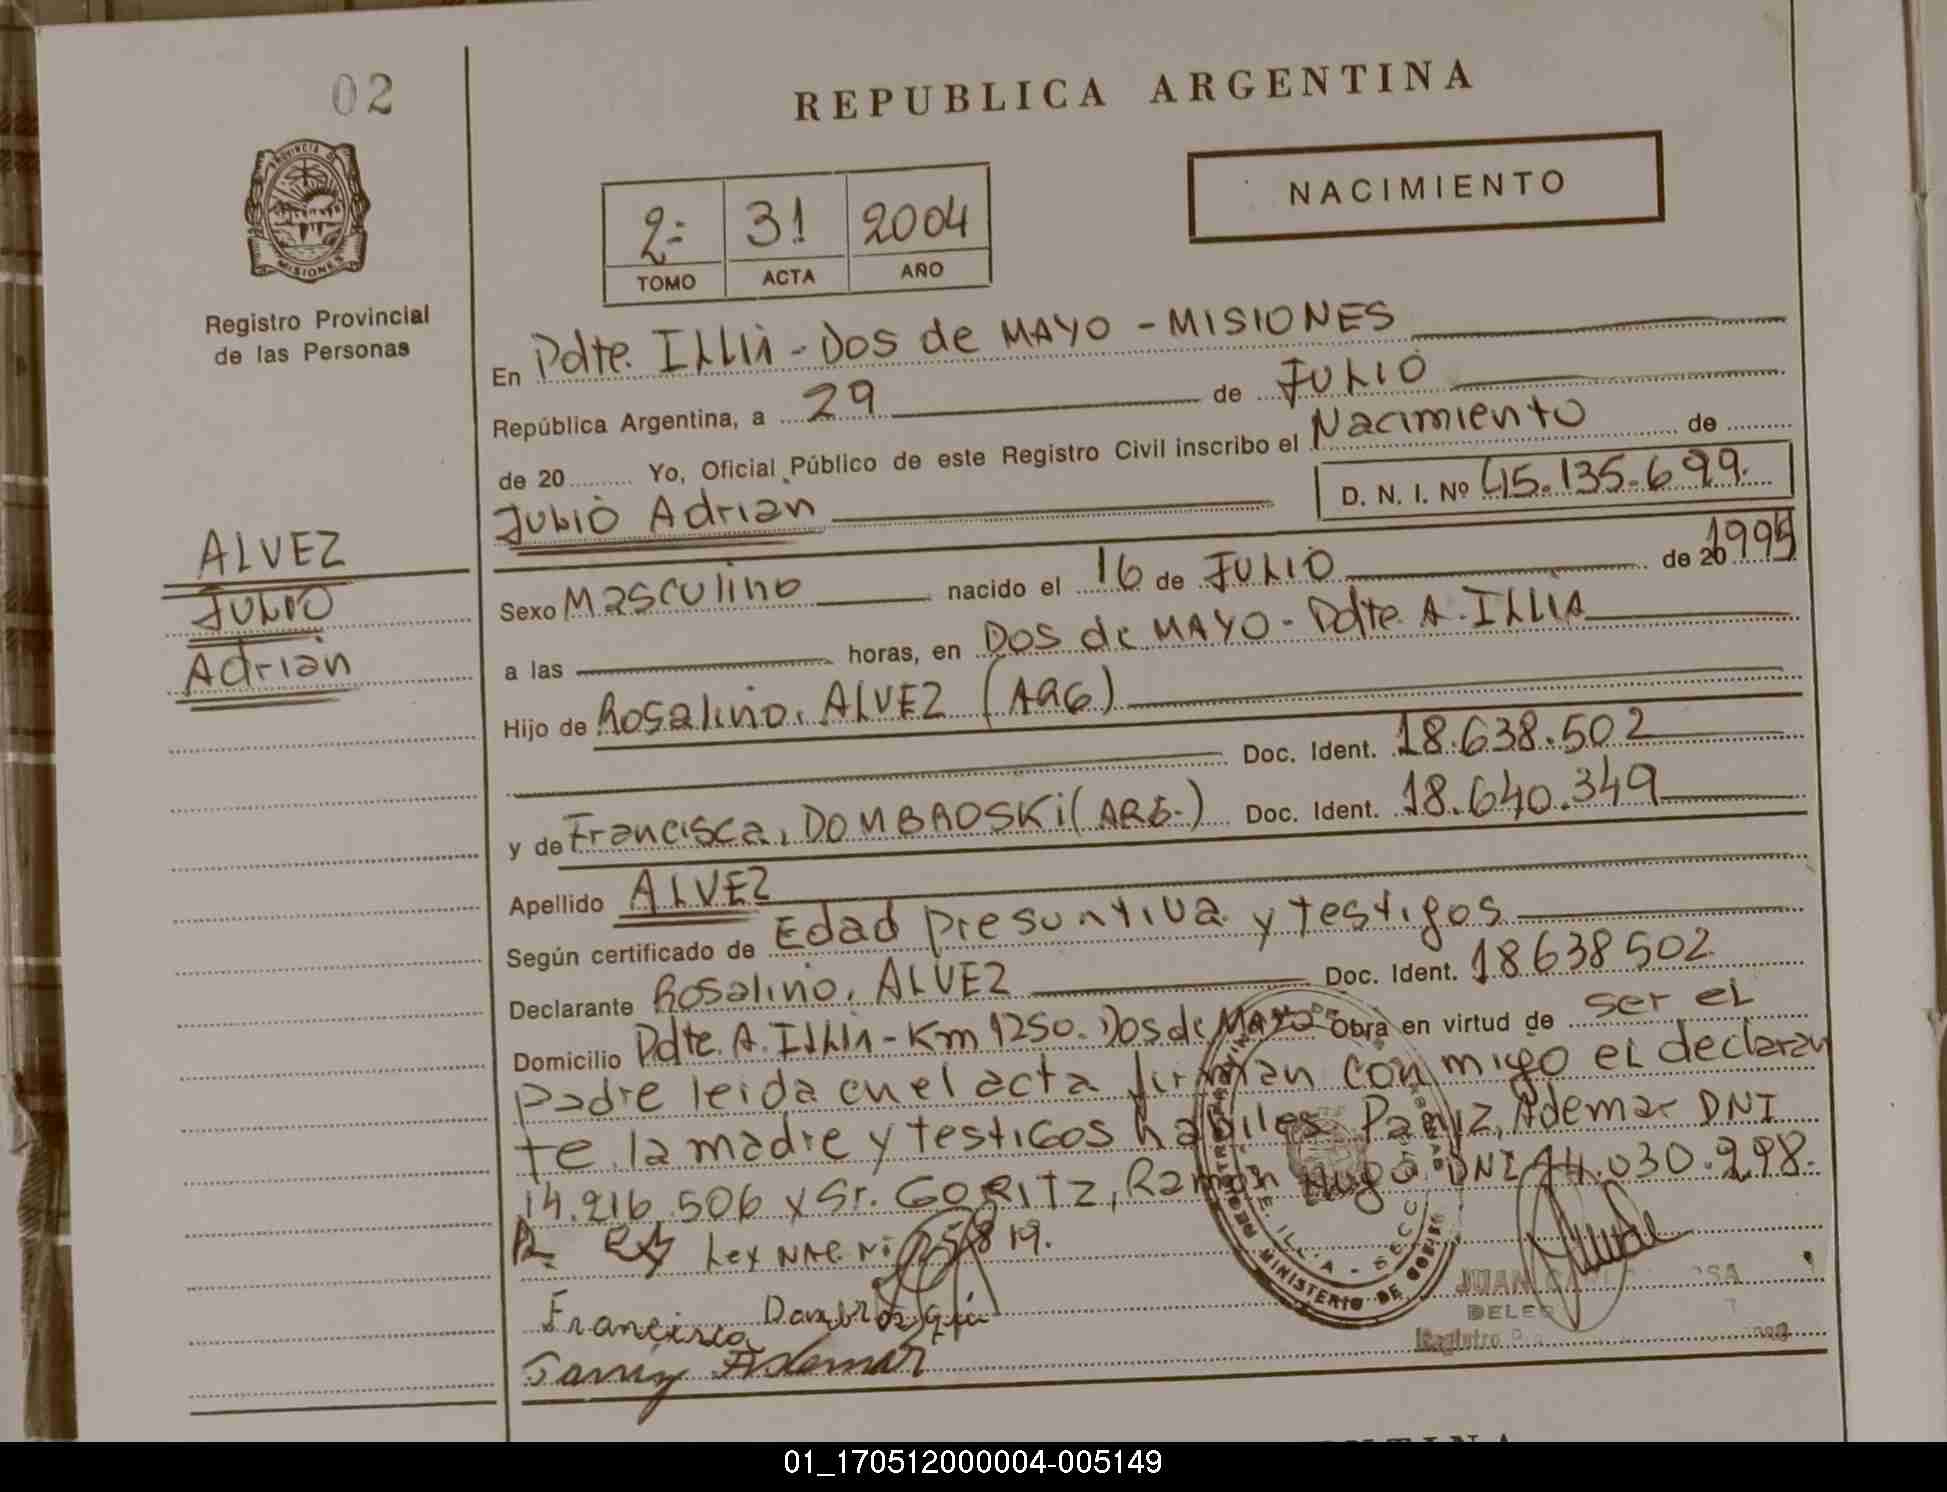 02
REPUBLICA ARGENTINA
NACIMIENTO
PROVINCIA DE
MISIONES
Registro Provincial
de las Personas
2= 31 2004
TOMO ACTA AÑO
En Pdte. ILLIA - Dos de MAYO - MISIONES
República Argentina, a 29 de JULIO
de 20 Yo, Oficial Público de este Registro Civil inscribo el Nacimiento de
JULIO Adrian D. N. I. Nº 45.135.699.
ALVEZ
JULIO
Adrian
Sexo Masculino nacido el 16 de JULIO de 20 1995
a las horas, en Dos de MAYO - Pdte. A. ILLIA
Hijo de Rosalino, ALVEZ (ARG)
Doc. Ident. 18.638.502
y de Francisca, DOMBROSKi (ARG.) Doc. Ident. 18.640.349
Apellido ALVEZ
Según certificado de Edad presuntiva y testigos
Declarante Rosalino, ALVEZ Doc. Ident. 18638502
Domicilio Pdte. A. ILLIA - Km 1250. Dos de MAYO Obra en virtud de ser el
padre leida en el acta firman con migo el declaran
te la madre y testigos habiles Paniz, Ademar DNI
14.216.506 y Sr. GORITZ, Ramon Hugo DNI 14.030.298.
Ley NAC. Nº 25819.
Francisca Dambrosqui
Ademar
MINISTERIO DE
JUAN
DELEG
Registro
01_170512000004-005149